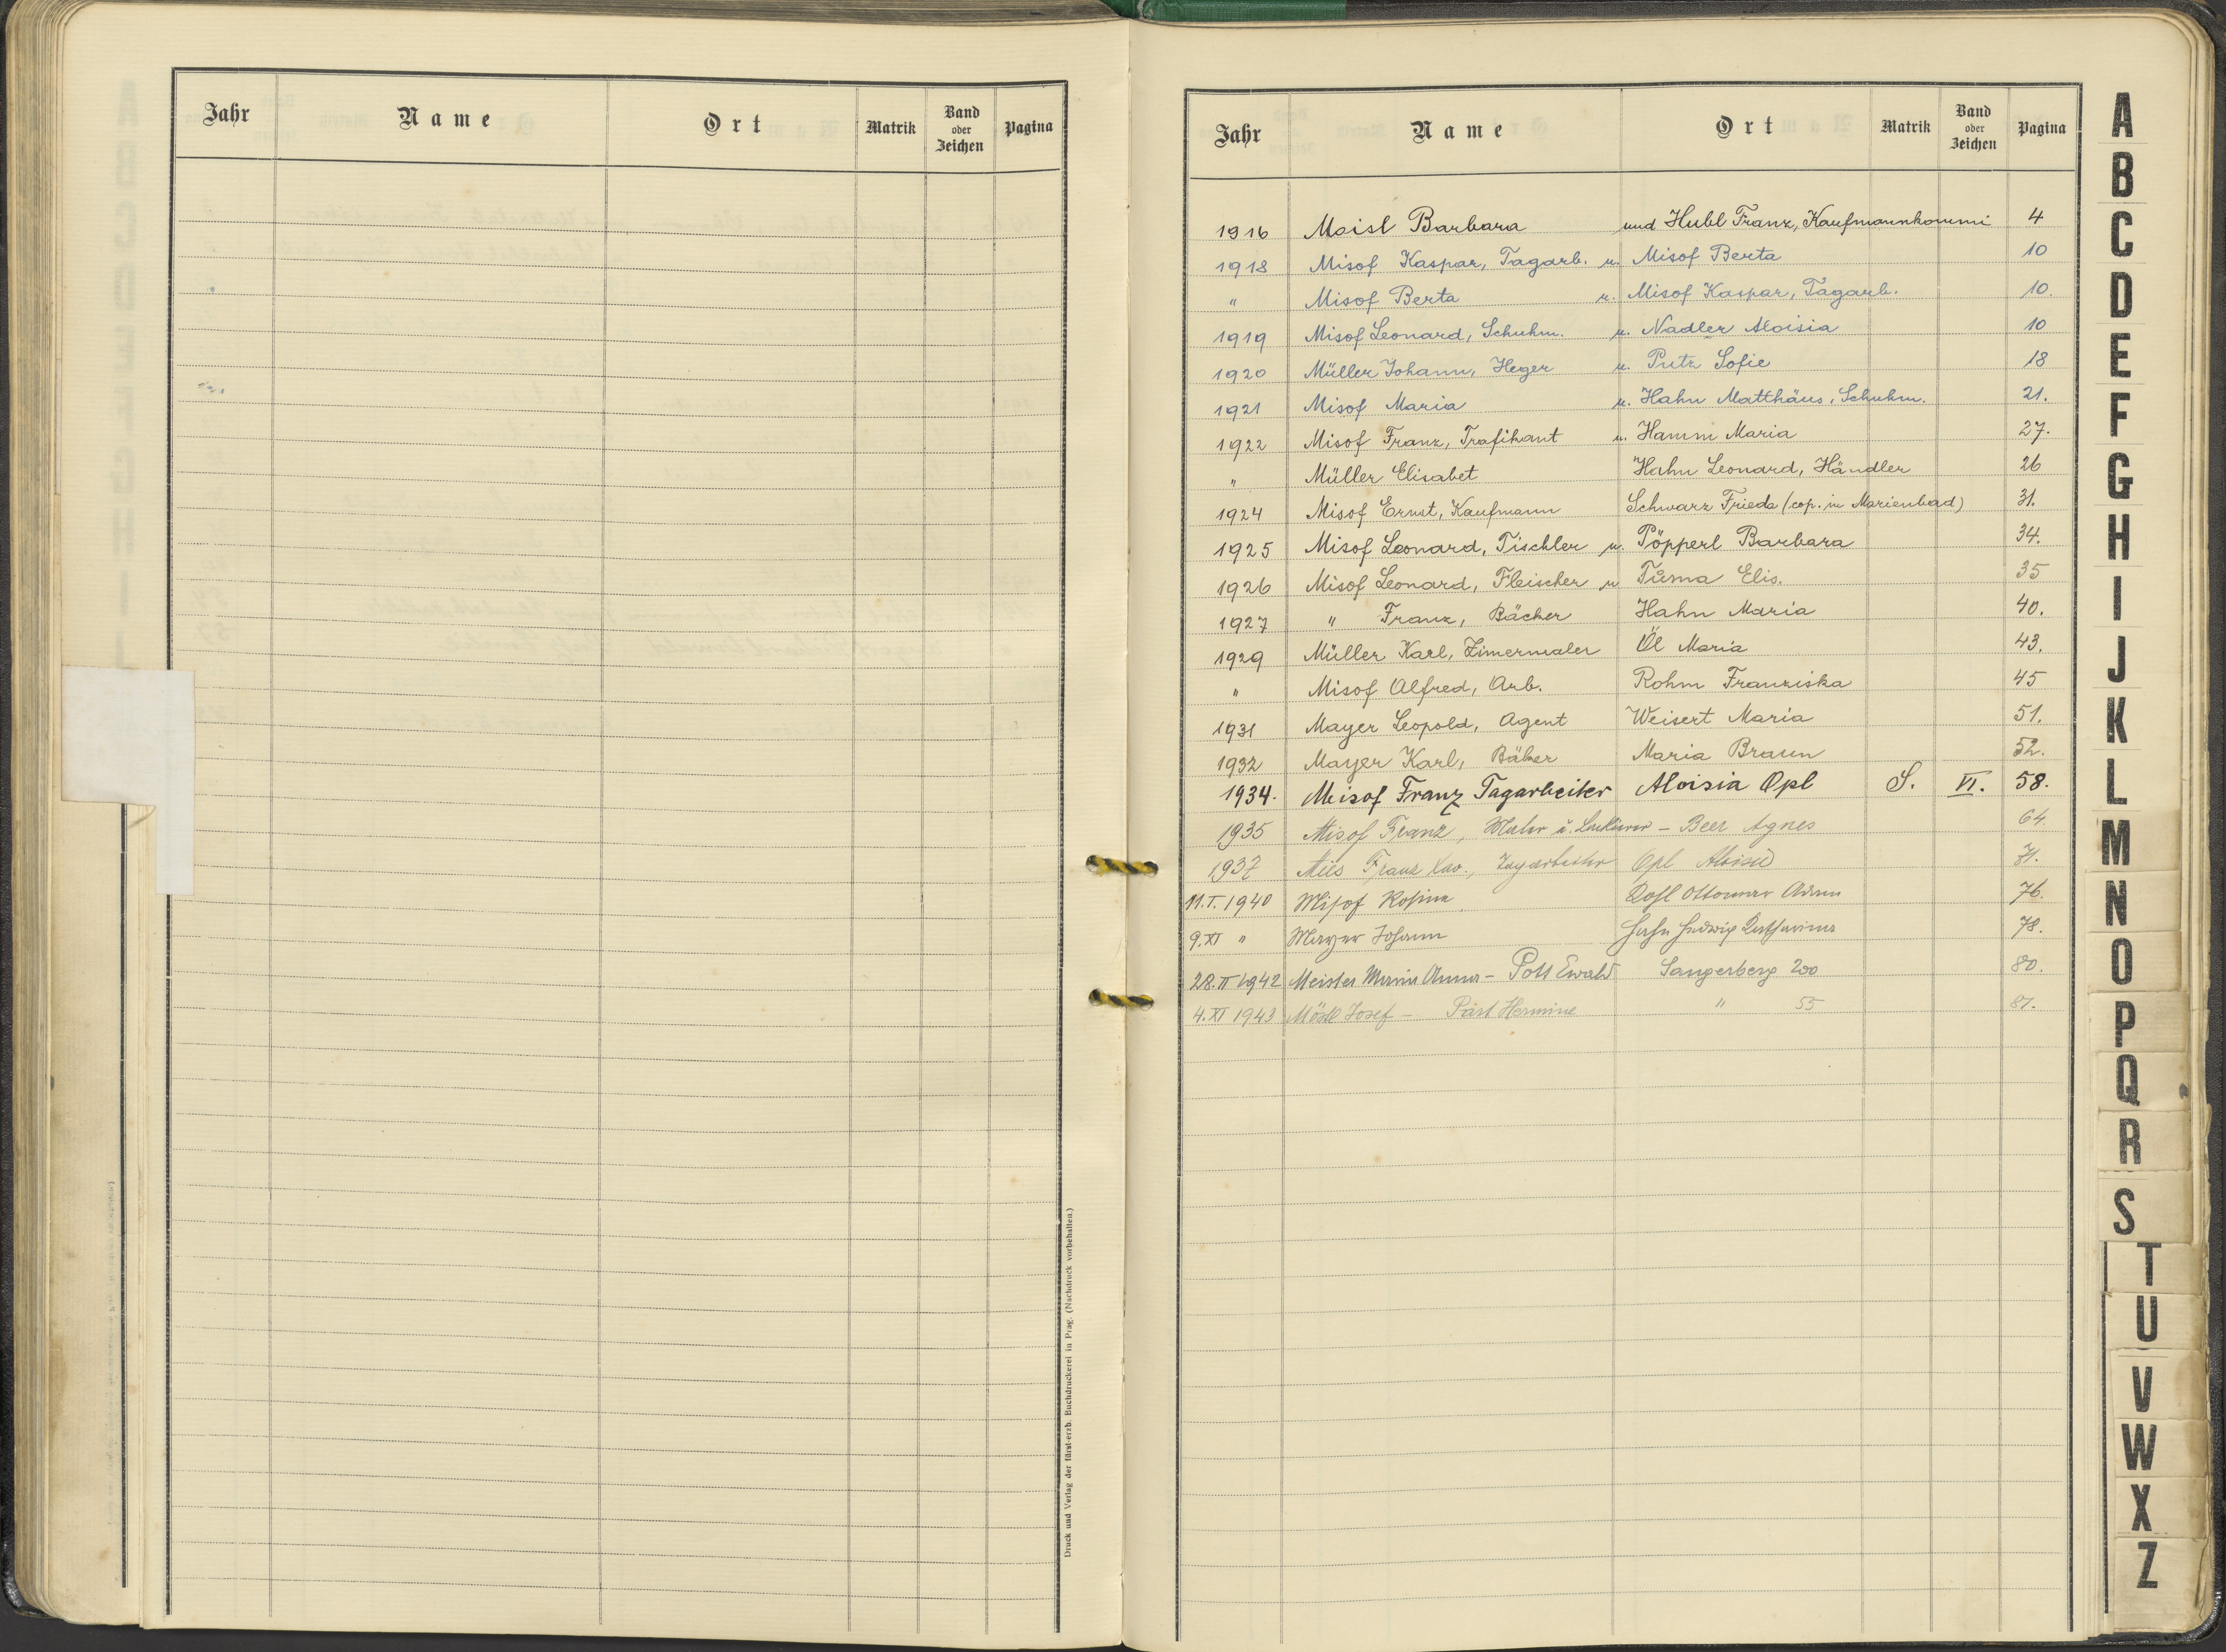 Jahr Name Ort Matrik Band oder Zeichen Pagina
Druck und Verlag der fürst-erzb. Buchdruckerei in Prag. (Nachdruck vorbehalten.)
Jahr Name Ort Matrik Band oder Zeichen Pagina
1916 Maisl Barbara und Hubl Franz, Kaufmannkommi 4
1918 Misof Kaspar, Tagarb. u. Misof Berta 10
" Misof Berta u. Misof Kaspar, Tagarb. 10.
1919 Misof Leonard, Schuhm. u. Nadler Aloisia 10
1920 Müller Johann, Heger u. Putz Sofie 18
1921 Misof Maria u. Hahn Matthäus, Schuhm. 21.
1922 Misof Franz, Trafikant u. Hamm Maria 27.
" Müller Elisabet Hahn Leonard, Händler 26
1924 Misof Ernst, Kaufmann Schwarz Frieda (cop. in Marienbad) 31.
1925 Misof Leonard, Tischler u. Pöpperl Barbara 34.
1926 Misof Leonard, Fleischer u Tůma Elis. 35
1927 " Franz, Bäcker Hahn Maria 40.
1929 Müller Karl, Zimermaler Öl Maria 43.
" Misof Alfred, Arb. Rohm Franziska 45
1931 Mayer Leopold, Agent Weisert Maria 51.
1932 Mayer Karl, Bäker Maria Braun 52.
1934. Misof Franz Tagarbeiter Aloisia Opl S. VI. 58.
1935 Misof Franz, Maler u. Lackierer - Beer Agnes 64.
1937 Franz Xav., Tagarbeiter Opl 71.
11.I.1940 Misof Rosina Ottomar Adam 76.
9.XI " Mayer Johann Hahn Hedwig Katharina 78.
28.II 1942 Meister Maria Anna - Pott Ewald Sangerberg 200 80.
4.XI 1943 Möstl Josef - Hermine " 55 81.
A
B
C
D
E
F
G
H
I
J
K
L
M
N
O
P
Q
R
S
T
U
V
W
X
Z